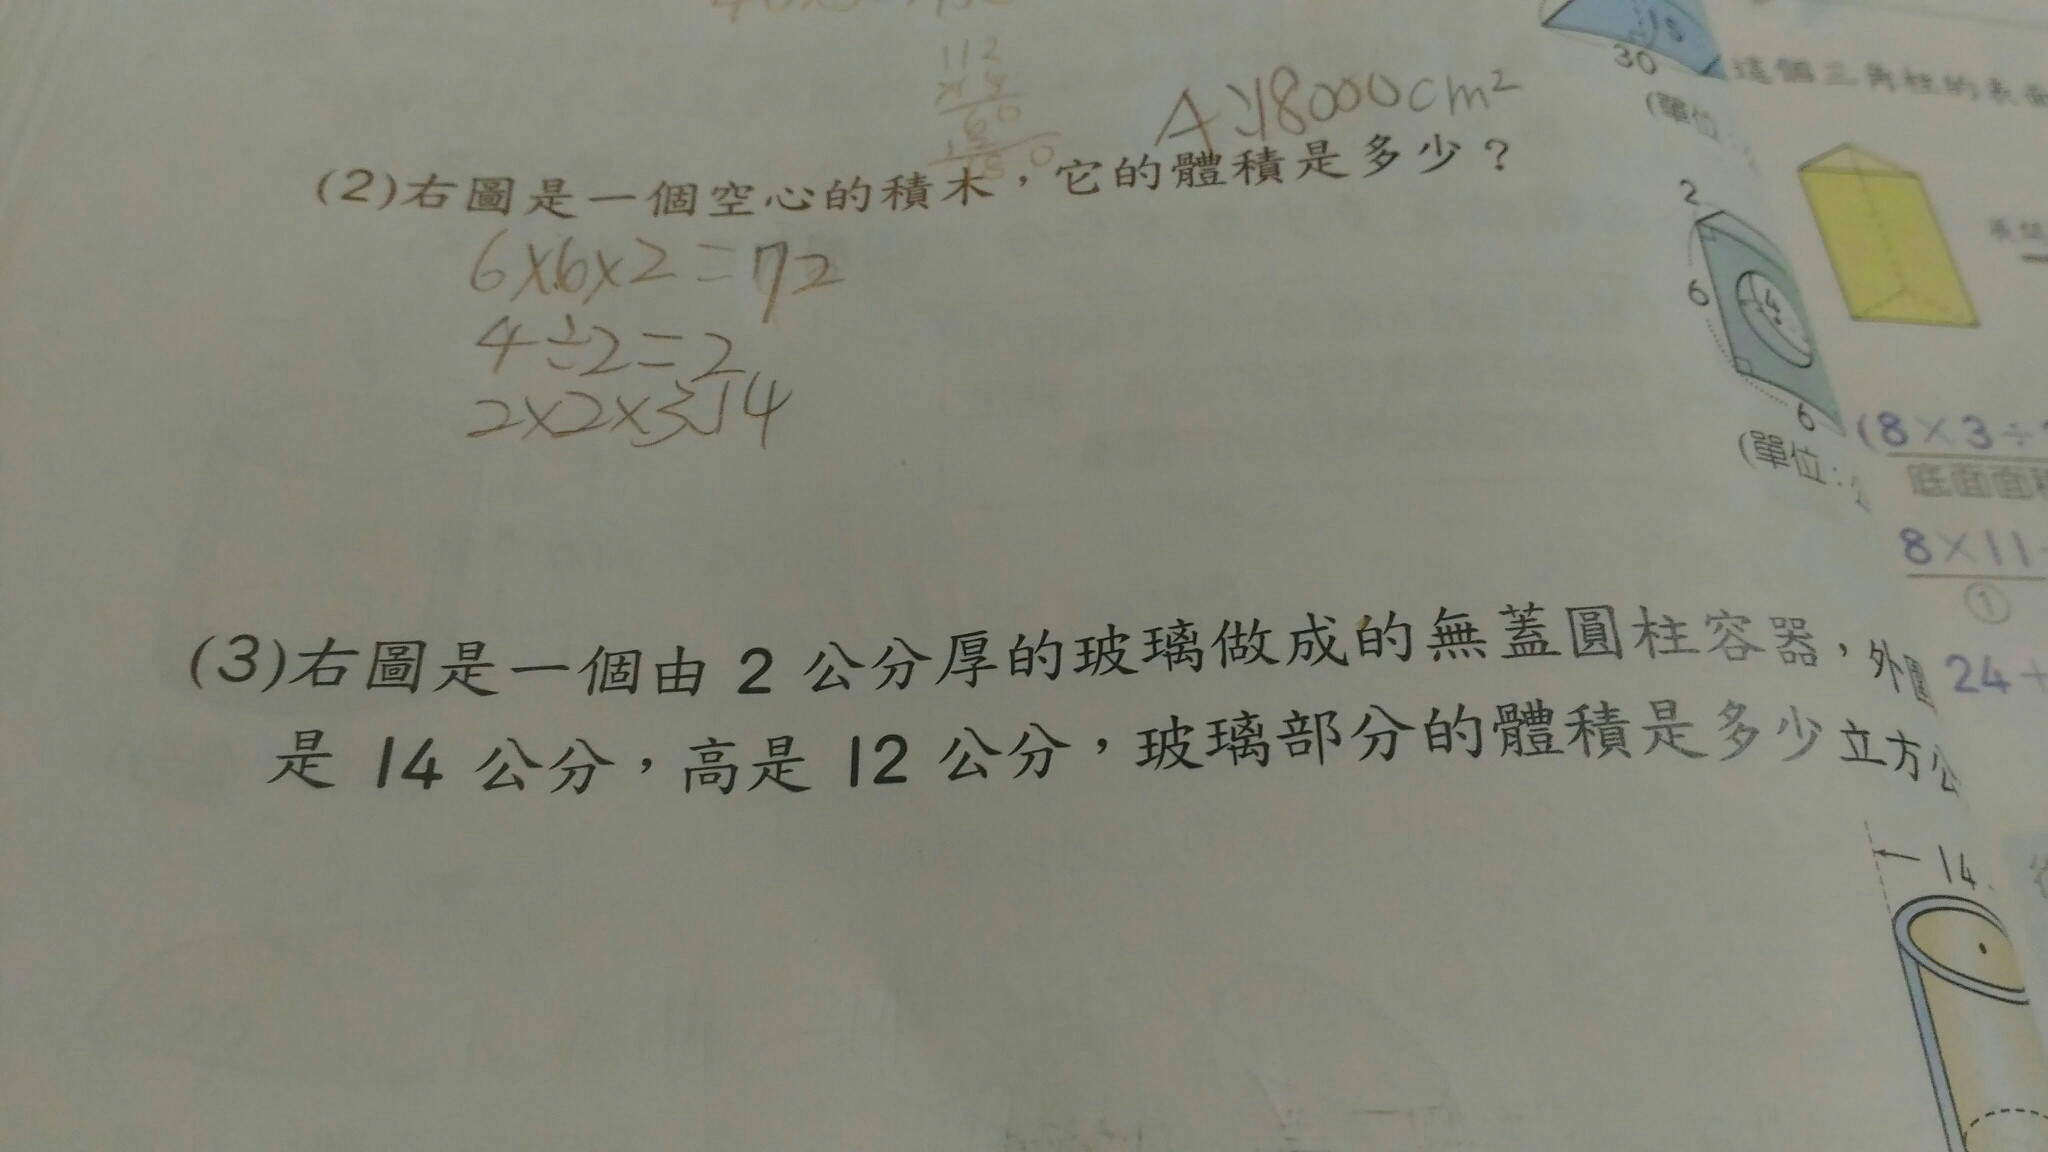 112
A:18000cm²
(2)右圖是一個空心的積木，它的體積是多少？
6×6×2=72
4÷2=2
2×2×3.14
(3)右圖是一個由 2 公分厚的玻璃做成的無蓋圓柱容器，外
是 14 公分，高是 12 公分，玻璃部分的體積是多少立方公
15
30
(單位
2
6
4
6
(單位：
14
這個三角柱的表
(8×3÷
底面面積
8×11
①
24+